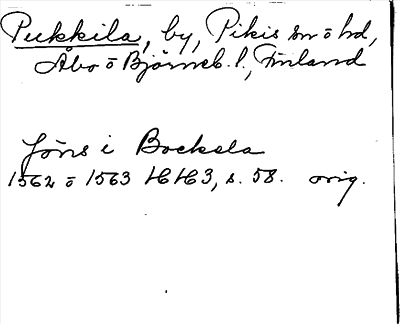 Pukkila, by, Pikis sn o hd,
Åbo o Björneb. l., Finland
Jöns i Bockela
1562 o 1563 HH3, s. 58. orig.